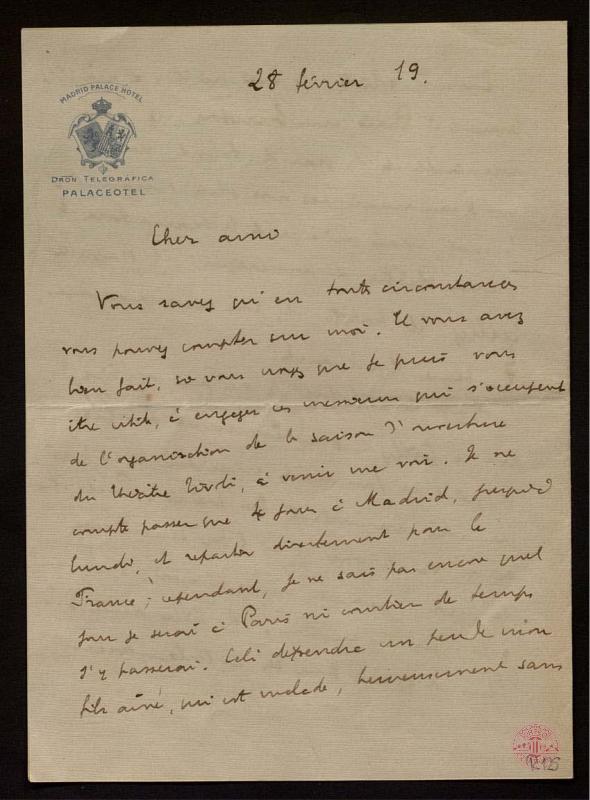 28 février 19.
MADRID PALACE HOTEL
DRON TELEGRÁFICA
PALACEOTEL
Cher ami
Vous savez qu'en toute circonstances
vous pouvez compter sur moi. Et vous avez
bien fait, si vous croyez que je puis vous
être utile, à engager ces messieurs qui s'occupent
de l'organisation de la saison d'ouverture
du théâtre Tivoli, à venir me voir. Je ne
compte passer que 4 jours à Madrid, jusqu'à
lundi, et repartir directement pour la
France; cependant, je ne sais pas encore quel
jour je serai à Paris ni combien de temps
j'y passerai. Celà dépendra un peu de mon
fils aîné, qui est malade, heureusement sans